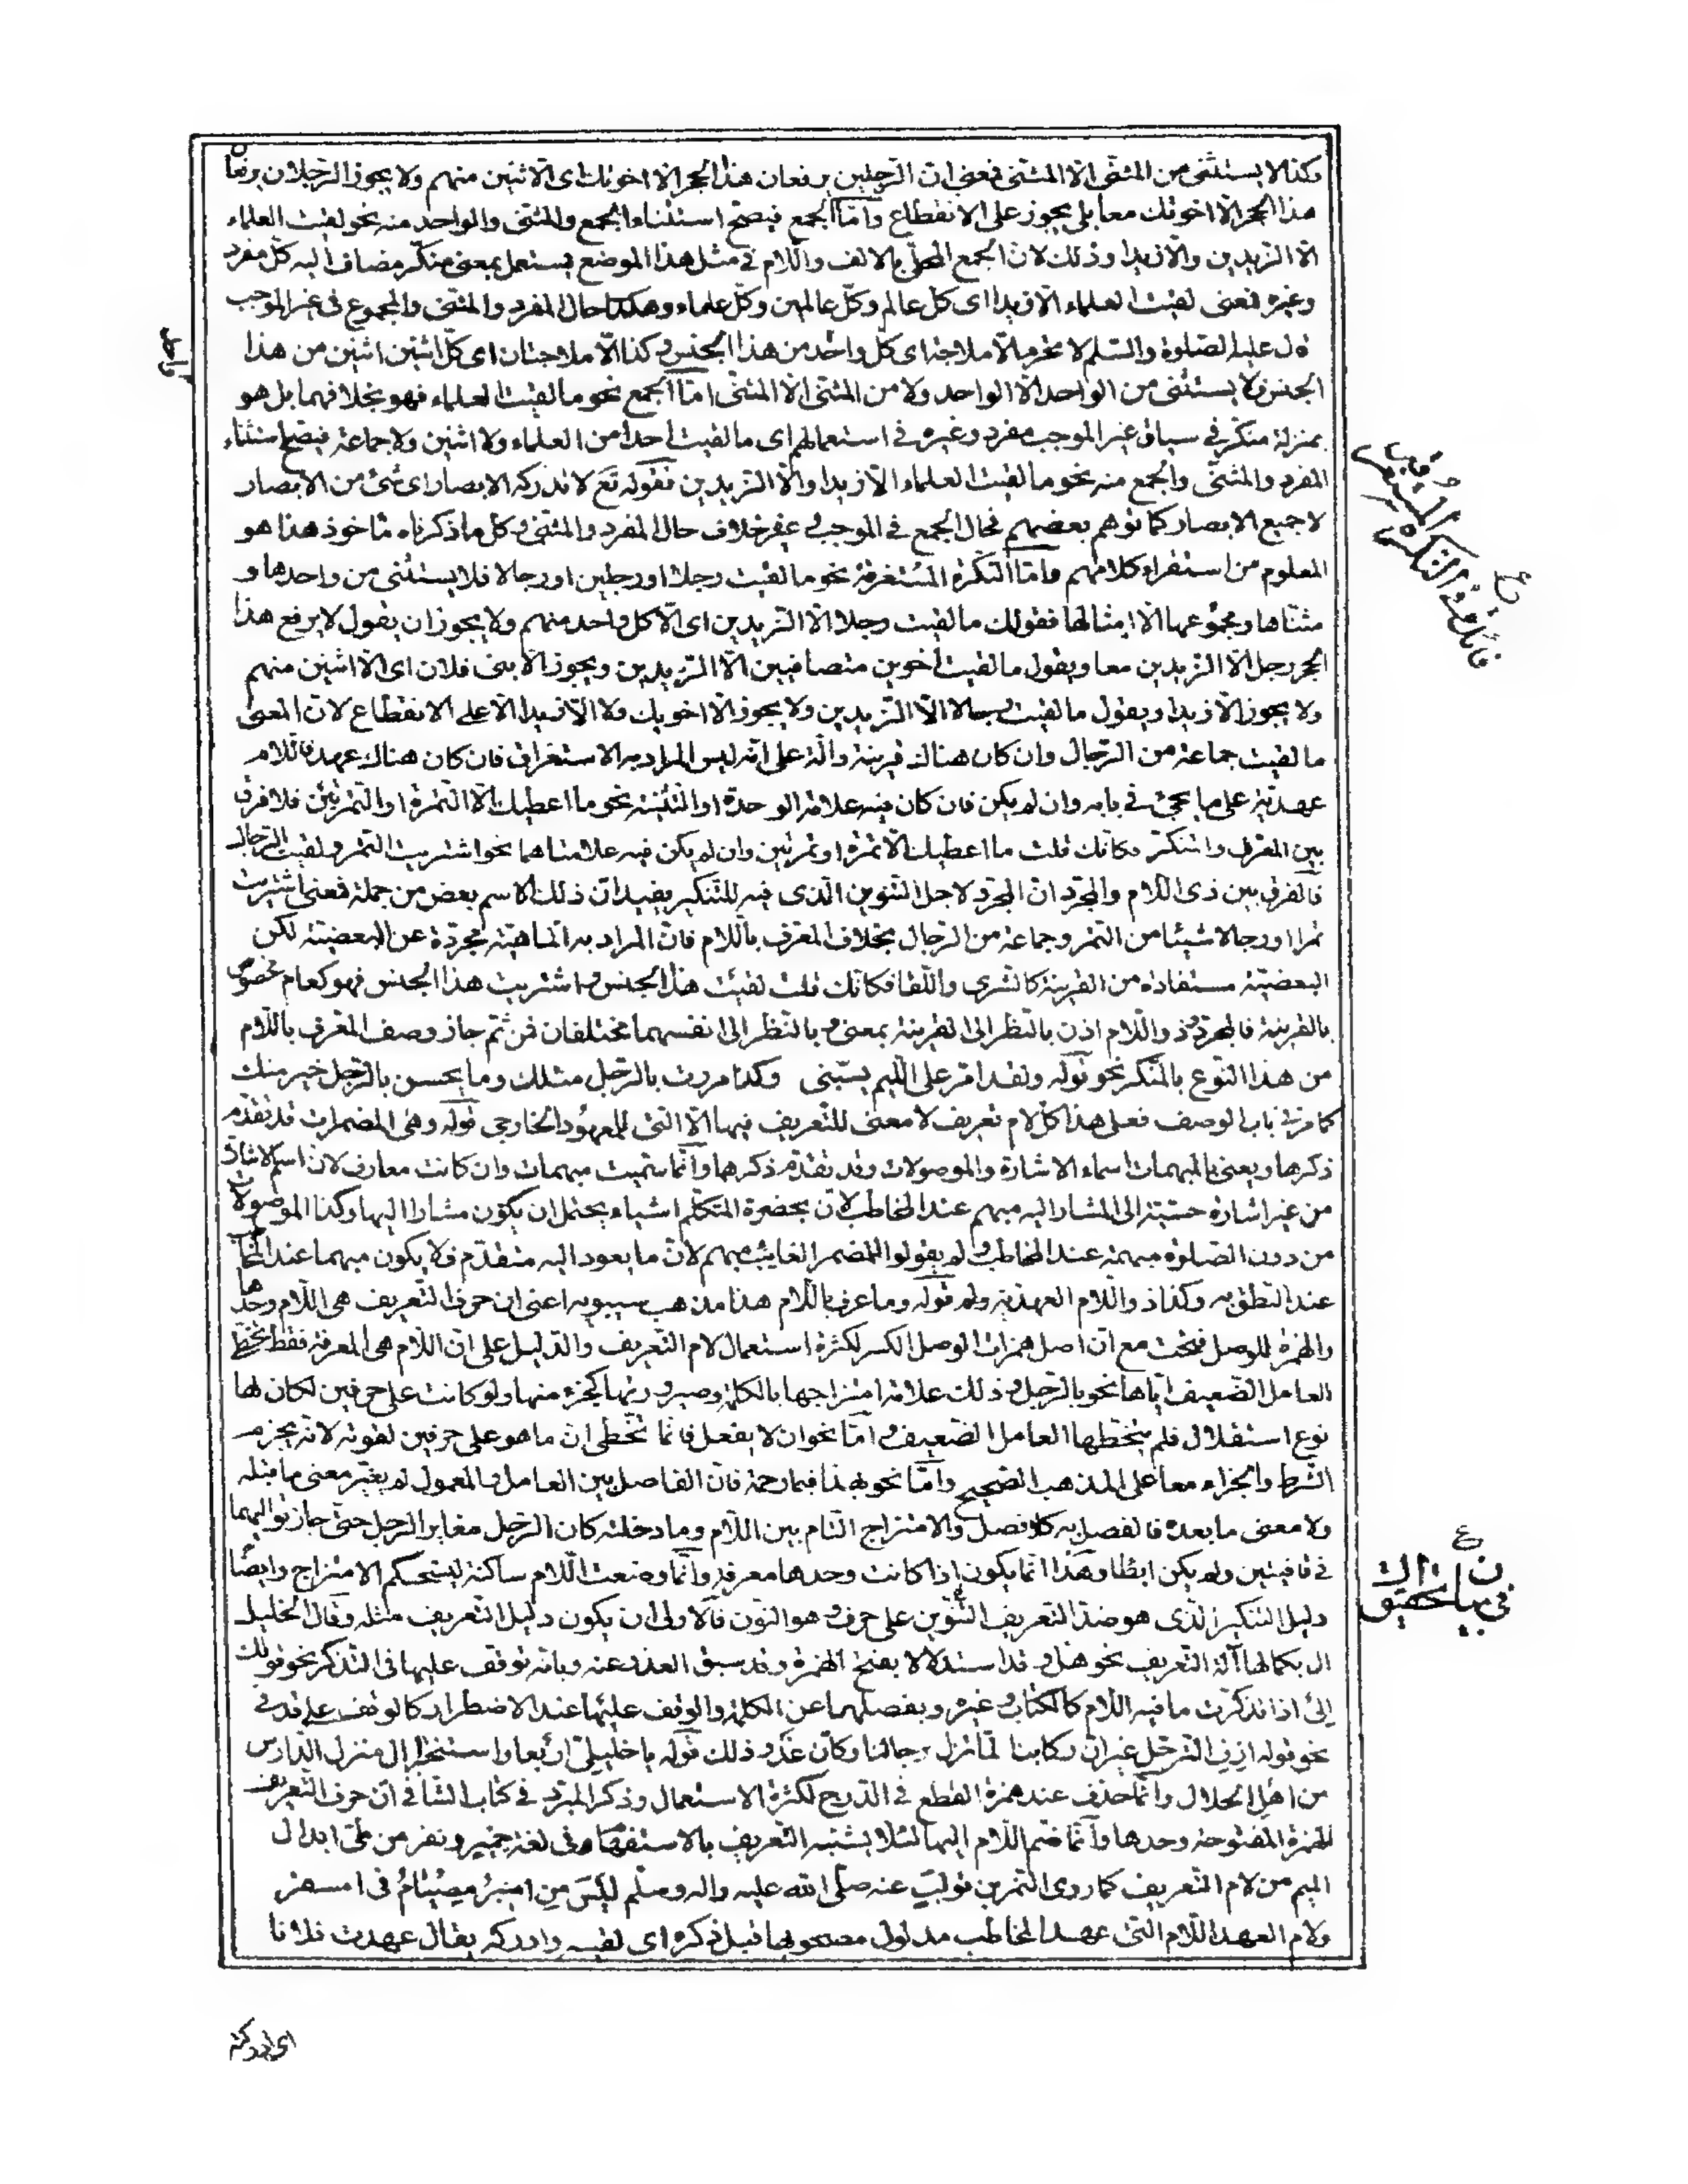 وكذا لا يستثنى من المثنى الا المثنى فمعنى ان الرجلين يرفعان هذا الحجر الا اخويك اى الا اثنين منهم ولا يجوز الرجلان يرفعان
هذا الحجر الا اخويك معا بلى يجوز على الانقطاع وامّا الجمع فيصحّ استثناء الجمع والمثنى والواحد منه نحو لقيت العلماء
الّا الزيدين والّا زيدا وذلك لان الجمع المحلّى بالالف واللّام فى مثل هذا الموضع يستعمل بمعنى منكّر مضاف اليه كلّ مفرد
وغيره فمعنى لقيت العلماء الّا زيدا اى كل عالم وكلّ عالمين وكلّ علماء وهكذا حال المفرد والمثنى والمجموع فى غير الموجب
قال عليه الصلوة والسّلم لا يحرم الاملاجة اى كل واحد من هذا الجنس وكذا الّا ملاجتان اى كلّ اثنين اثنين من هذا
الجنس فلا يستثنى من الواحد الّا الواحد ولا من المثنى الّا المثنّى امّا الجمع نحو ما لقيت العلماء فهو بخلافهما بل هو
بمنزلة منكّر فى سياق غير الموجب مفرد وغيره فى استعمالهم اى ما لقيت احدا من العلماء ولا اثنين ولا جماعة فيصحّ استثناء
المفرد والمثنّى والجمع منه نحو ما لقيت العلماء الّا زيدا والّا الزيدين فقوله تع لا تدركه الابصار اى شئ من الابصار
لا جميع الابصار كما توهم بعضهم فحال الجمع فى الموجب وغيره خلاف حال المفرد والمثنى وكل ما ذكرناه مأخوذ هذا هو
المعلوم من استقراء كلامهم وامّا النكرة المستغرقة نحو ما لقيت رجلا او رجلين او رجالا فلا يستثنى من واحدها و
مثنّاها ومجموعها الّا امثالها فقولك ما لقيت رجلا الّا الزيدين اى الّا كل واحد منهم ولا يجوز ان يقول لا يرفع هذا
الحجر رجل الّا الزيدين معا ويقول ما لقيت اخوين متصافيين الّا الزيدين ويجوز الّا بنى فلان اى الّا اثنين منهم
ولا يجوز الّا زيدا ويقول ما لقيت رجالا الّا الزيدين ولا يجوز الّا اخويك ولا الّا زيدا الّا على الانقطاع لانّ المعنى
ما لقيت جماعة من الرّجال وان كان هناك قرينة دالّة على انّه ليس المراد به الاستغراق فان كان هناك عهد فاللام
عهديّة على ما يجئ فى بابه وان لم يكن فان كان فيه علامة الوحدة او التثنية نحو ما اعطيك الّا التمرة او التمرتين فلا فرق
بين المعرّف والمنكّر فكانّك قلت ما اعطيك الّا تمرة او تمرتين وان لم يكن فيه علامتاهما نحو اشتريت التمر ولقيت الرّجال
فالفرق بين ذى اللّام والمجرّد انّ المجرّد لاجل التنوين الّذى فيه للتّنكير يفيد انّ ذلك الاسم بعض من جملة فمعنى اشتريت
تمرا او رجالا شيئا من التمر وجماعة من الرّجال بخلاف المعرّف باللّام فانّ المراد به الماهيّة مجرّدة عن البعضيّة لكن
البعضيّة مستفادة من القرينة كالشرى واللّقا فكانّك قلت لقيت هذا الجنس واشتريت هذا الجنس فهو كعام مخصوص
بالقرينة فالمجرّد وذو اللّام اذن بالنّظر الى القرينة بمعنى وبالنّظر الى انفسهما مختلفان فمن ثم جاز وصف المعرّف باللّام
من هذا النّوع بالمنكّر نحو قوله ولقد امرّ على اللّئيم يسبّنى وكذا مررت بالرّجل مثلك وما يحسن بالرّجل خير منك
كما مرّ فى باب الوصف فعلى هذا كل لام تعريف لا معنى للتّعريف فيها الّا الّتى للمعهود الخارجى قوله وهى المضمرات قد تقدّم
ذكرها ويعنى بالمبهمات اسماء الاشارة والموصولات وقد تقدّم ذكرها وانّما سمّيت مبهمات وان كانت معارف لان اسم الاشارة
من غير اشارة حسّيّة الى المشار اليه مبهم عند المخاطب لانّ بحضرة المتكلّم اشياء يحتمل ان يكون مشارا اليها وكذا الموصولات
من دون الصّلوة مبهمة عند المخاطب ولم يقولوا للمضمر الغايب مبهم لانّ ما يعود اليه متقدّم فلا يكون مبهما عند المخاطب
عند النّطق به وكذا ذو اللّام العهديّة ولم قوله وما عرف باللّام هذا مذهب سيبويه اعنى ان حرف التّعريف هى اللّام وحدها
والهمزة للوصل فتحت مع انّ اصل همزات الوصل الكسر لكثرة استعمال لام التّعريف والدّليل على انّ اللّام هى المعرفة فقط تخطّى
العامل الضّعيف ايّاها نحو بالرّجل وذلك علامة امتزاجها بالكلمة وصيرورتها كجزء منها ولو كانت على حرفين لكان لها
نوع استقلال فلم يتخطّها العامل الضّعيف وامّا نحو ان لا يفعل فانّما تخطّى ان ما هو على حرفين لقوته لانه يجزم
الشّرط والجزاء معا على المذهب الصّحيح وامّا نحو بهذا فبما رحمة فانّ الفاصل بين العامل والمعمول لم يغيّر معنى ما قبله
ولا معنى ما بعده فالفصل به كلا فصل والامتزاج التّام بين اللّام وما دخلته كان الرّجل مغايرا لرجل حتى جاز تواليهما
فى قافيتين ولم يكن ايطاء وهذا انّما يكون اذا كانت وحدها معرفة وانّما وضعت اللّام ساكنة ليستحكم الامتزاج وايضا
دليل التنكير الّذى هو ضدّ التعريف التّنوين على حرف وهو النّون فالاولى ان يكون دليل التعريف مثله وقال الخليل
ال بكمالها آلة التّعريف نحو هل وقد استدلالا بفتح الهمزة وقد سبق العذر عنه وبانّه توقف عليها فى التذكر نحو قولك
الى اذا تذكّرت ما فيه اللّام كالكتاب وغيره وبفصلهما عن الكلمة والوقف عليها عند الاضطرار كالوقف على قد فى
نحو قوله ازف التّرحّل غير انّ ركابنا لمّا تزل برحالنا وكان قد وذلك قوله يا خليلىّ اربعا واستخبرا ال منزل الدّارس
من اهل الحلال وانّما حذف عنده همزة القطع فى الدّرج لكثرة الاستعمال وذكر المبرّد فى كتاب الشّافى انّ حرف التّعريف
الهمزة المفتوحة وحدها وانّما ضمّ اللّام اليها لئلا يشتبه التّعريف بالاستفهام وفى لغة حمير ونفر من طىّ ابدال
الميم من لام التّعريف كما روى النّمر بن تولب عنه صلّى الله عليه واله وسلّم ليس من امبرّ امصيام فى امسفر
ولام العهد اللّام التى عهد المخاطب مدلول مصحوبها قبل ذكره اى لقيه وادركه يقال عهدت فلانا
اى ادركته